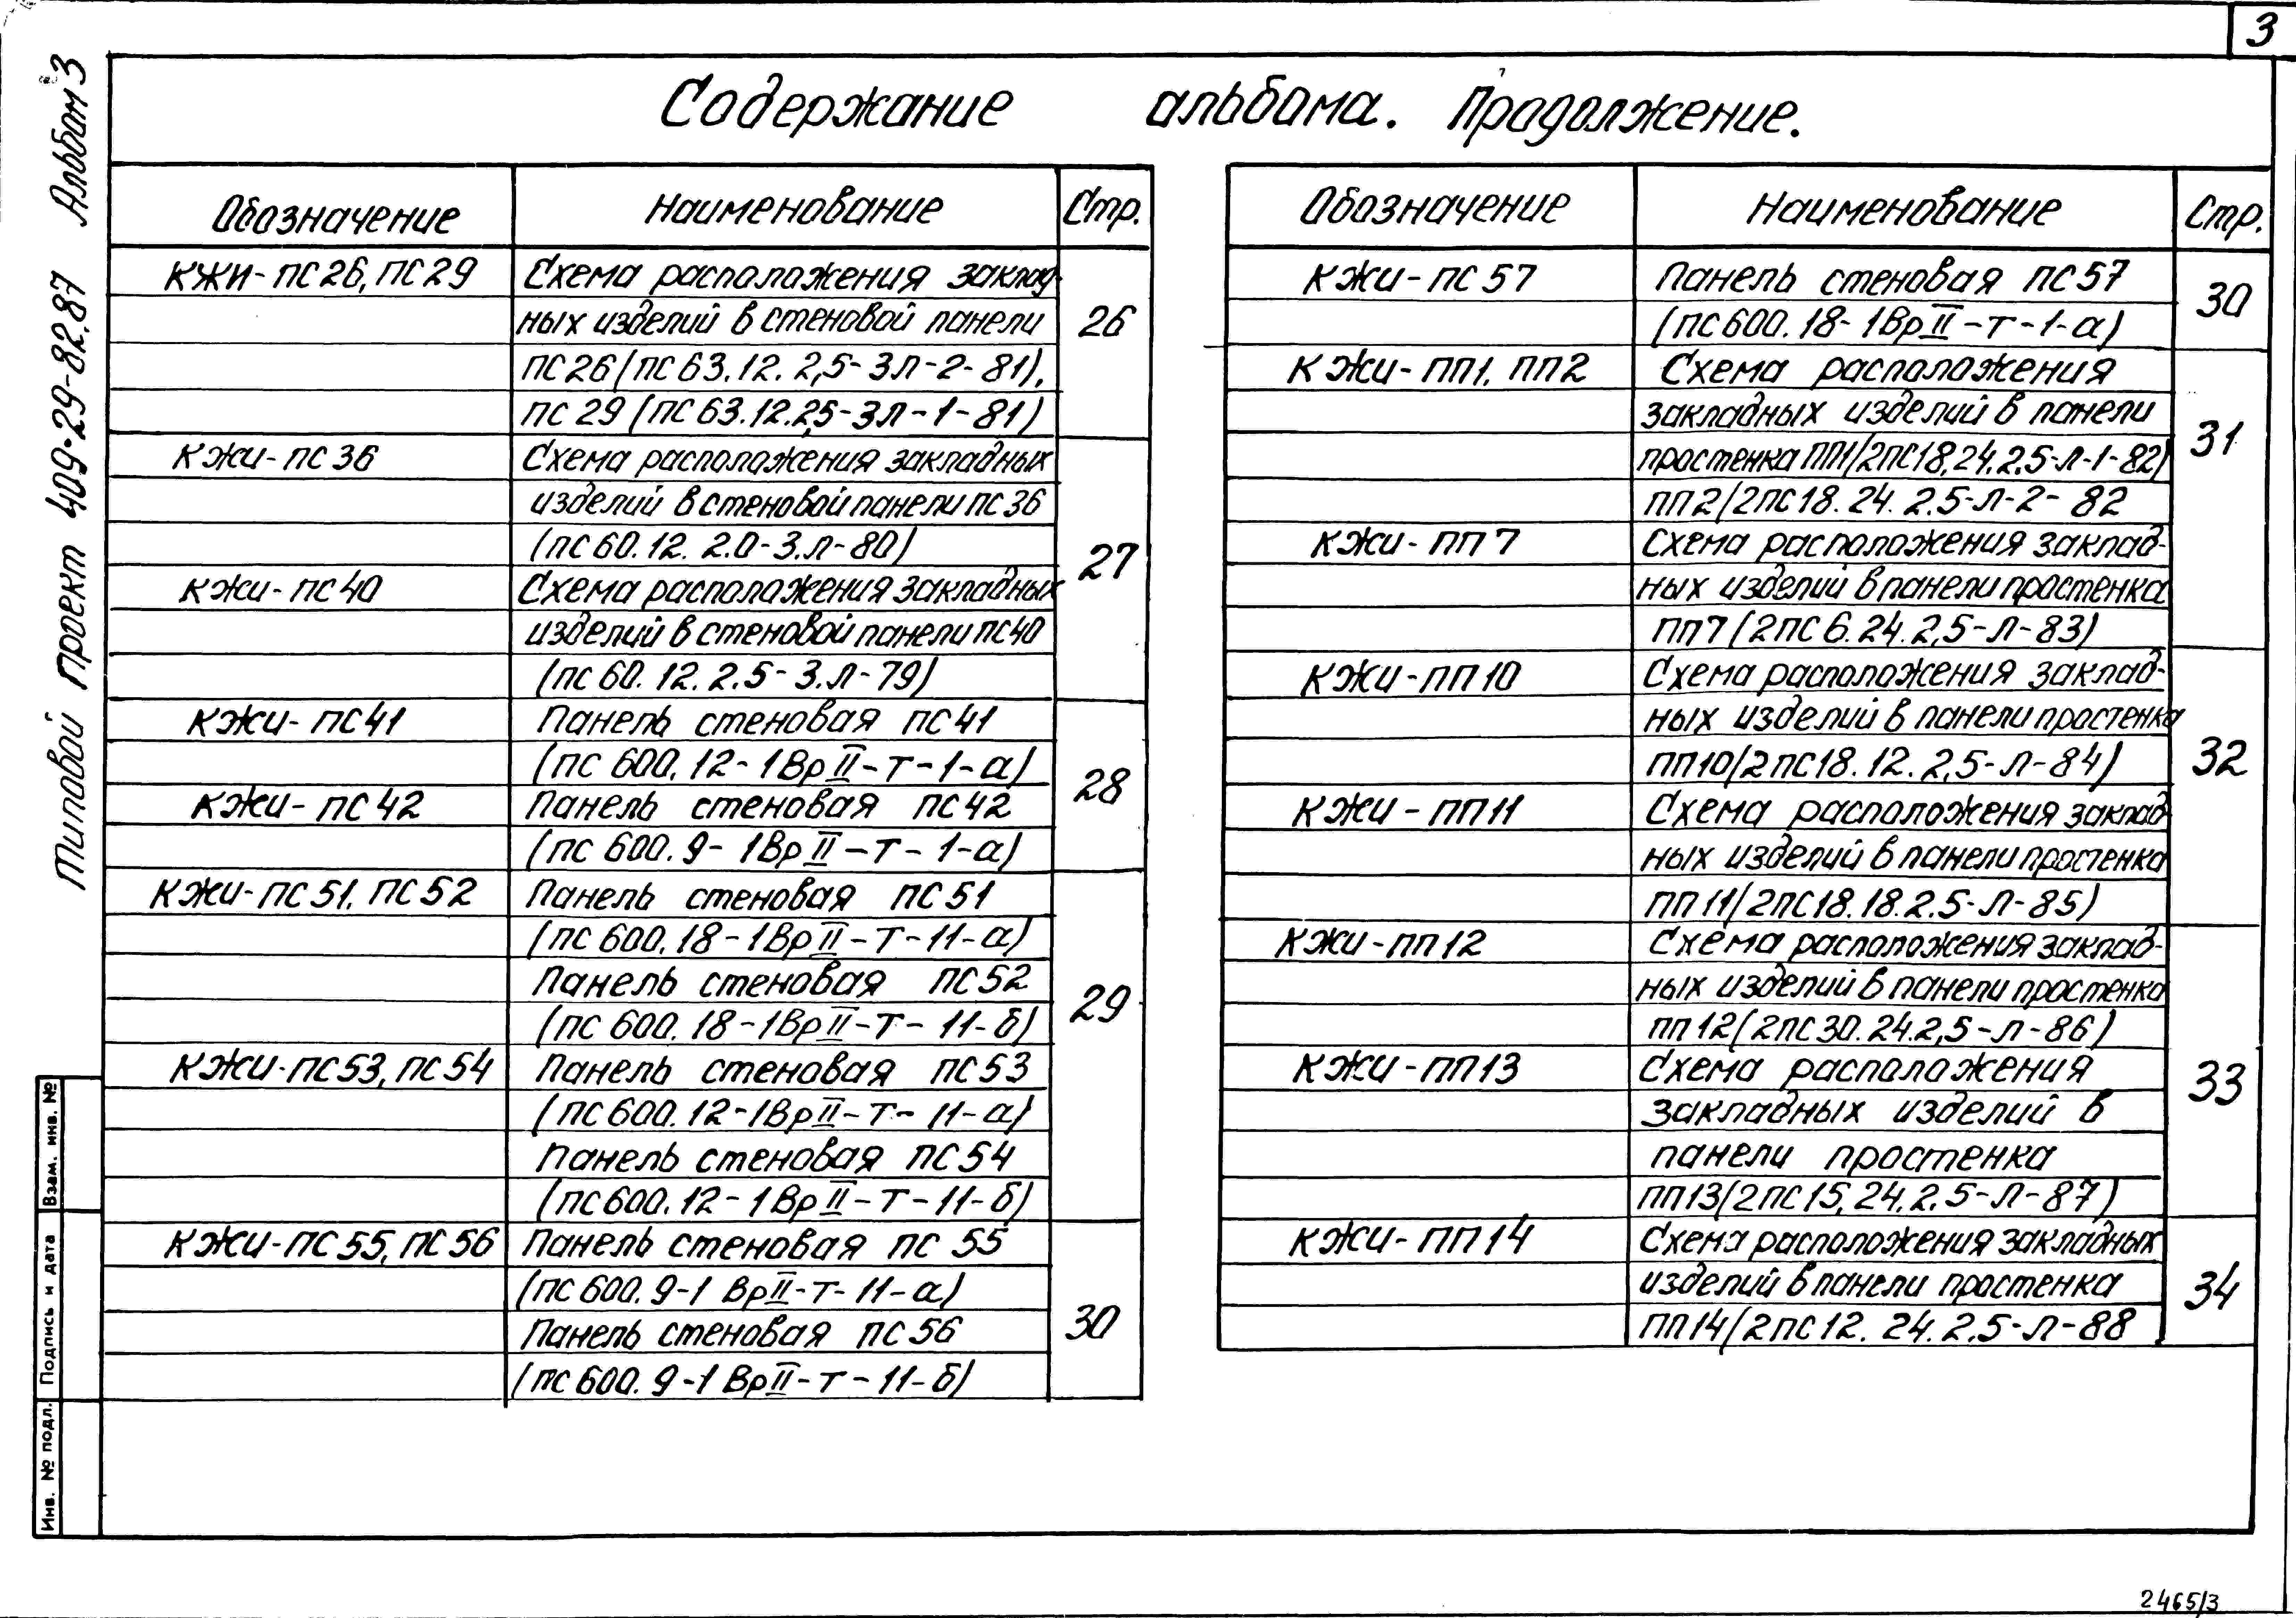 3
Содержание альбома. Продолжение.
Типовой проект 409-29-82.87 Альбом 3
Обозначение Наименование Стр.
КЖИ-ПС26, ПС29 Схема расположения заклад-
ных изделий в стеновой панели 26
ПС26 (ПС63.12.2,5-3Л-2-81),
ПС29 (ПС63.12.2,5-3Л-1-81)
КЖИ-ПС36 Схема расположения закладных
изделий в стеновой панели ПС36
(ПС60.12.2.0-3.Л-80) 27
КЖИ-ПС40 Схема расположения закладных
изделий в стеновой панели ПС40
(ПС60.12.2.5-3.Л-79)
КЖИ-ПС41 Панель стеновая ПС41
(ПС600.12-1ВрII-Т-1-а) 28
КЖИ-ПС42 Панель стеновая ПС42
(ПС600.9-1ВрII-Т-1-а)
КЖИ-ПС51, ПС52 Панель стеновая ПС51
(ПС600.18-1ВрII-Т-11-а)
Панель стеновая ПС52
(ПС600.18-1ВрII-Т-11-б) 29
КЖИ-ПС53, ПС54 Панель стеновая ПС53
(ПС600.12-1ВрII-Т-11-а)
Панель стеновая ПС54
(ПС600.12-1ВрII-Т-11-б)
КЖИ-ПС55, ПС56 Панель стеновая ПС55
(ПС600.9-1ВрII-Т-11-а)
Панель стеновая ПС56 30
(ПС600.9-1ВрII-Т-11-б)
Обозначение Наименование Стр.
КЖИ-ПС57 Панель стеновая ПС57 30
(ПС600.18-1ВрII-Т-1-а)
КЖИ-ПП1, ПП2 Схема расположения
закладных изделий в панели 31
простенка ПП1(2ПС18.24.2.5-Л-1-82)
ПП2(2ПС18.24.2.5-Л-2-82
КЖИ-ПП7 Схема расположения заклад-
ных изделий в панели простенка
ПП7(2ПС6.24.2,5-Л-83)
КЖИ-ПП10 Схема расположения заклад-
ных изделий в панели простенка
ПП10(2ПС18.12.2,5-Л-84) 32
КЖИ-ПП11 Схема расположения заклад-
ных изделий в панели простенка
ПП11(2ПС18.18.2.5-Л-85)
КЖИ-ПП12 Схема расположения заклад-
ных изделий в панели простенка
ПП12(2ПС30.24.2,5-Л-86)
КЖИ-ПП13 Схема расположения 33
закладных изделий в
панели простенка
ПП13(2ПС15.24.2.5-Л-87)
КЖИ-ПП14 Схема расположения закладных
изделий в панели простенка 34
ПП14(2ПС12.24.2.5-Л-88
Взам. инв. №
Подпись и дата
Инв. № подл.
2465/3